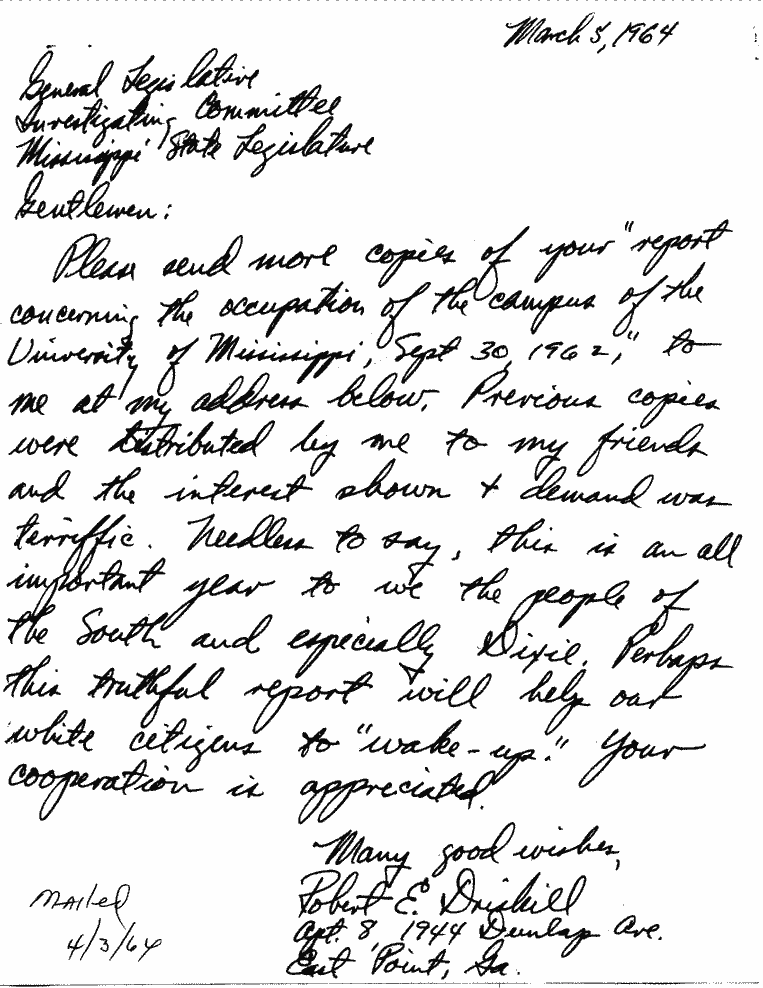 March 5, 1964
General Legislative
Investigating Committee
Mississippi State Legislature
Gentlemen:
Please send more copies of your "report
concerning the occupation of the campus of the
University of Mississippi, Sept 30, 1962," to
me at my address below. Previous copies
were distributed by me to my friends
and the interest shown + demand was
terriffic. Needless to say, this is an all
important year to we the people of
the South and especially Dixie. Perhaps
this truthful report will help our
white citizens to "wake-up." Your
cooperation is appreciated.
Many good wishes,
Robert E. Driskill
Apt. 8 1944 Dunlap Ave.
East Point, Ga.
Mailed
4/3/64